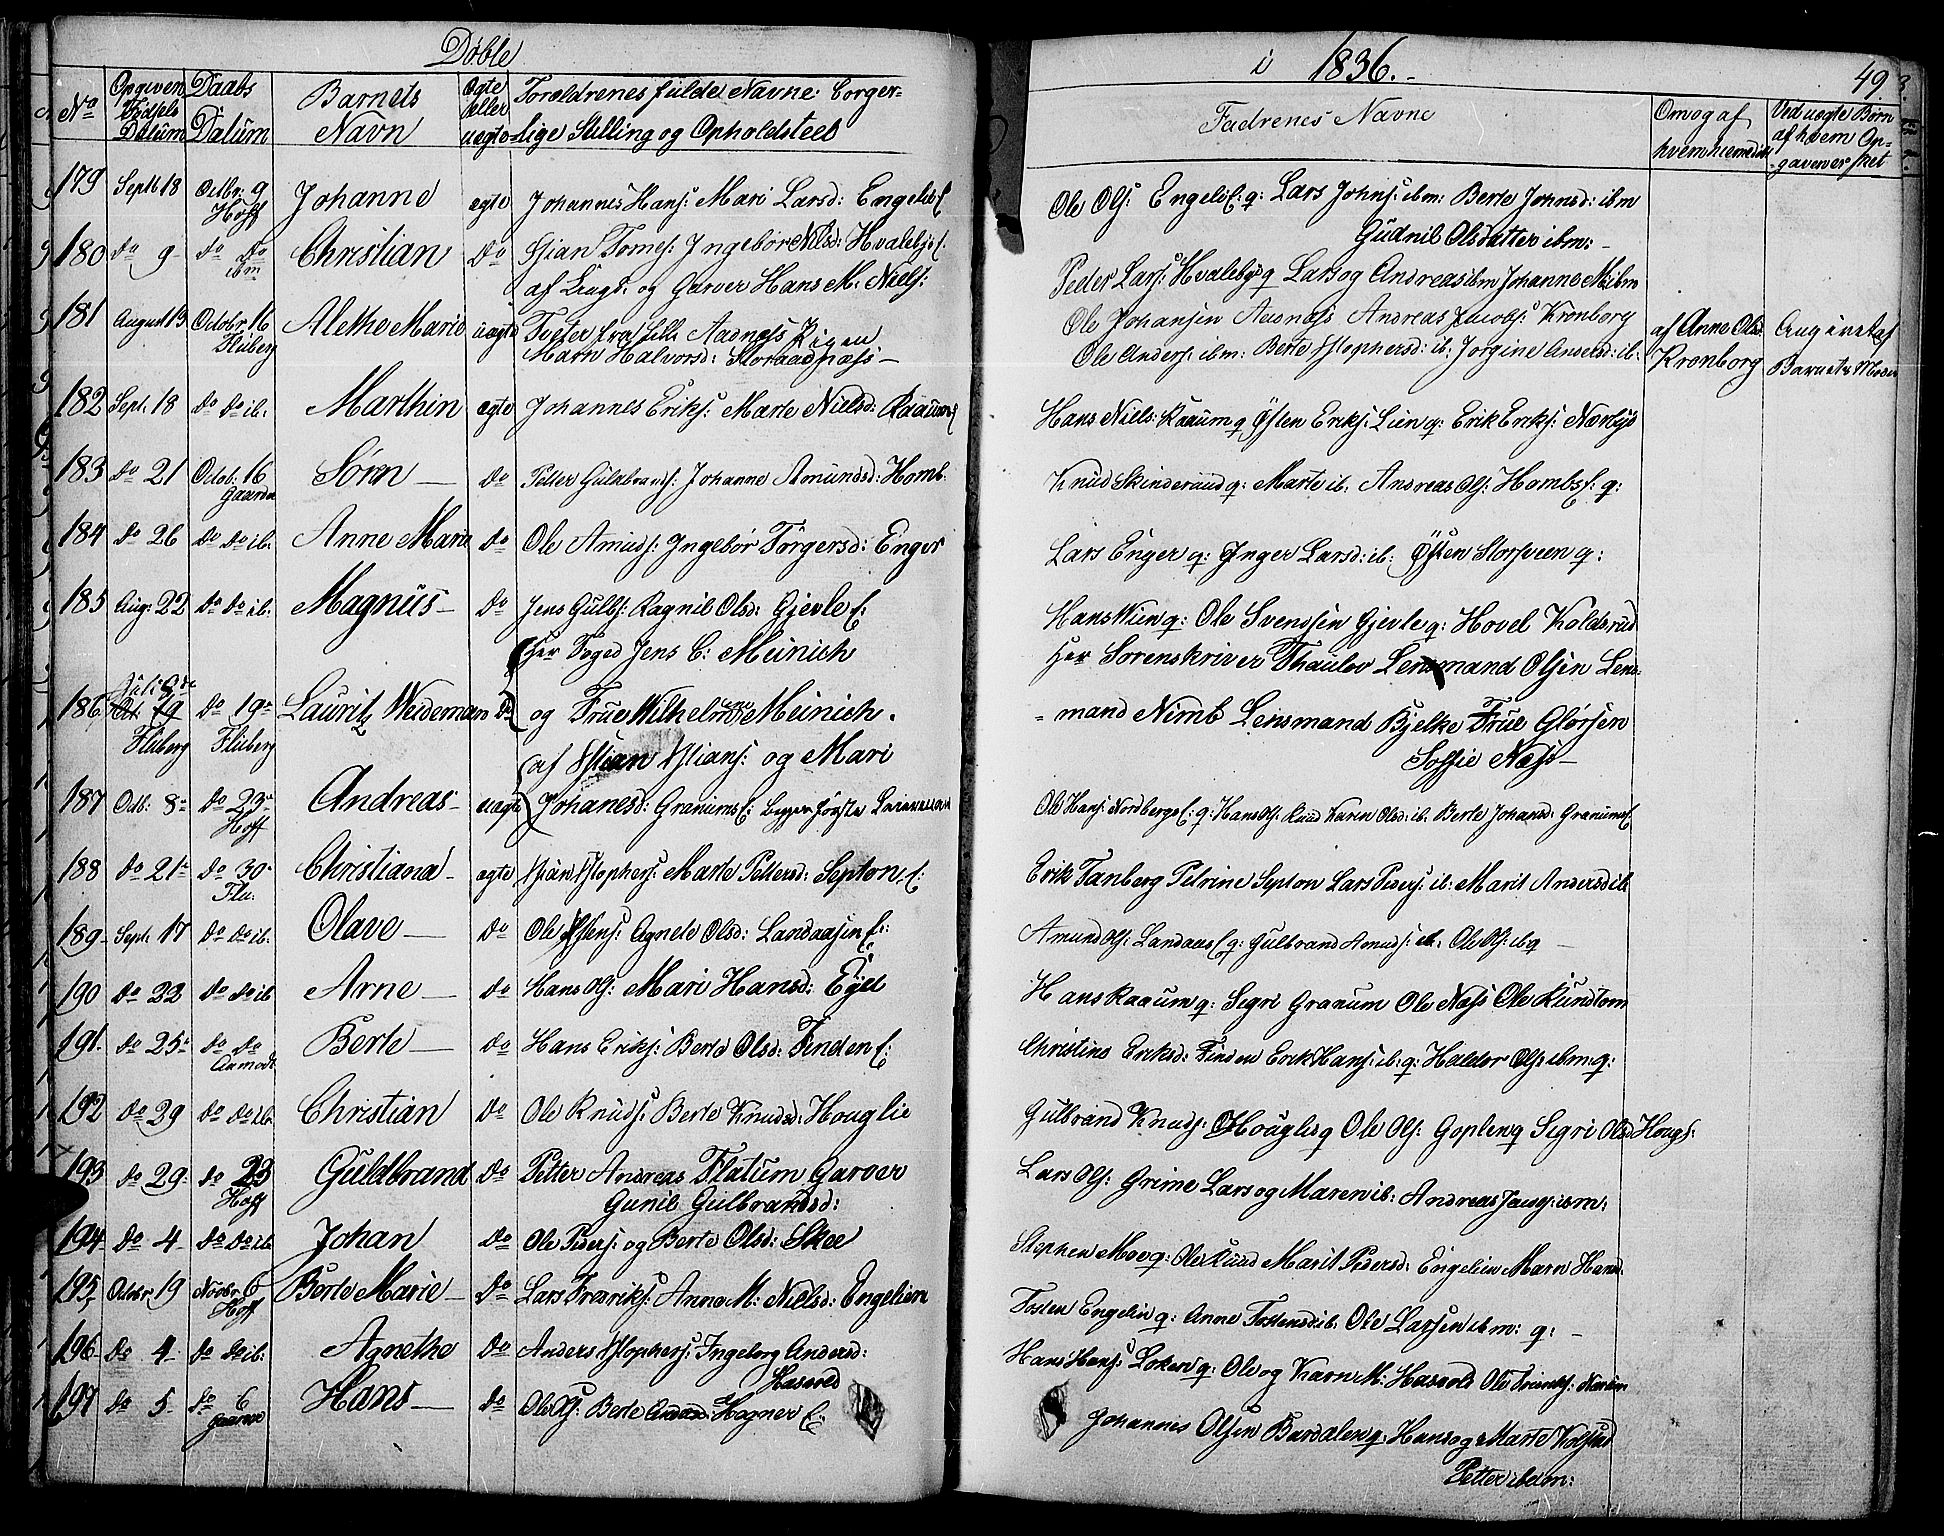 Døble
i 1836.-
49
No
Opgiven Fødsels Datum
Daabs Datum
Barnets Navn
Ægte eller uægte
Foreldrenes fulde Navne borger-
lige Stilling og Opholdsteds
Fadrenes Navne
Om og af
hvem hiemedøbt
Ved uægte Børn
af hvem Op-
gaven er sket
179 Septb 18 Octbr: 9 Hoff Johanne ægte Johannes Hansf: Mari Larsd: Engelief
Ole Olsf: Engelief: q: Lars Johnsf: ibm: Berte Johnsd: ibm
Gudnil Olsdatter ibm:-
180 do 9 do do ibm Christian do Stian Tomesf: Ingebor Nilsd: Hvalebyef:
Peder Larsf: Hvalebye q Lars og Andreas ibm Johanne M: ibm
181 August 13 Octobr 16 Fluberg Alethe Marie uægte af Ungk: og Garver Hans M. Nielsf:
Aadnæs Pigen
Marn Halvorsd: Storaadnæss-
Ole Johansen Aadnæss Andreas Jacobsf: Kronborg
Ole Andersf: ibm: Berte Stophersd: ib: Jørgine Andersd: ib:
af Anne Olsd
Kronborg
Angivet af
Barnets Moder
182 Sept. 18 do do ib. Marthin ægte Johannes Eriksf: Marte Nielsd: Raaumf
Hans Niels: Raaum q Østen Eriksf: Lien q: Erik Eriksf: Nærbye
183 do 21 Octob: 16 Gaarder Søren do Petter Gulbrandsf: Johanne Amundsd: Homb
Knud Skinderud q: Marte ib. Andreas Olsf: Hombsf: q:
184 do 26 do do ib. Anne Marie do Ole Amudsf: Ingebor Torgersd: Enger
Lars Enger q: Inger Larsd: ib: Østen Storsveen q:
185 Aug: 22 do do ib. Magnus do Jens Gulbsf: Ragnil Olsd: Gjevlef:
Hans Wien q: Ole Svendsen Gjevle q: Hovel Koldsrud
186 Juli 8de Fluberg do 19de Fluberg Lauritz Weideman do Her Foged Jens C: Meinich
og Frue Wilhelmine Meinich.
Her Sorenskriver Thaulov Lensmand Olsen Lens-
mand Nimb Lensmand Bjelke Frue Glørsen
Soffie Næss-
187 Octb: 8de do 23de Hoff Andreas uægte af Stian Stiansf: og Mari
Johanesd: Granumsf: begges første Leiermaal
Ole Hansf: Nordbergef: q: Hans Olsf: Ruud Karen Olsd: ib. Berte Johansd: Granumsf
188 do 21de do 30de Flu: Christiana ægte Stian Stophersf: Marte Pettersd: Septonef:
Erik Tanberg Petrine Septon Lars Pedersf: ib: Marit Andersd ib
189 Sept. 17 do do ib. Olave do Ole Stensf: Agnete Olsd: Landaasenf:
Amund Olsf: Landaasf q: Gulbrand Amudsf: ib: Ole Olsf: ib q
190 do 22 do do ib Arne do Hans Olsf: Mari Hansd: Egel
Hans Raaum q: Sigri Granum Ole Næss Ole Rundtom
191 do 25de do do Aamodt Berte do Hans Eriksf: Berte Olsd: Findenf:
Christine Eriksd: Finden Erik Hansf: ib: q: Haldor Olsf: ibm: q:
192 do 29 do do ib Christian do Ole Knudsf: Berte Knudsd: Houglie
Gulbrand Knudsf: Houglie q Ole Olsf: Goplen q Sigri Olsd Hougsf:
193 do 29 do 23 Hoff Guldbrand do Petter Andreas Flatum Garver
Gunil Gulbrandsd:
Lars Olsf: Grime Lars og Maren ib: Andreas Jensf: ibm:
194 do 4 do do ib Johan do Ole Pedersf: og Berte Olsd: Skee
Stephen Moe q: Ole Ruud Marit Pedersd: Engelien Marn Hansd:
195 Octobr 19 Novbr 6 Hoff Berte Marie do Lars Fredriksf: Anne M: Nielsd: Engelien
Tosten Engelien q: Anne Tostensd ib: Ole Larsen ibm: q:
196 do 4 do do ib: Agnethe do Anders Stophersf: Ingeborg Andersd:
Hasvold
Hans Hansf: Lokerd q: Ole og Karn M: Hasvold Ole
197 do 5 do 6 Gaarder Hans do Ole Olsf: Berte Hagnerf:
Johannes Olsen Bardalen q: Hans og Marte Kolstad
Petter ibdm: